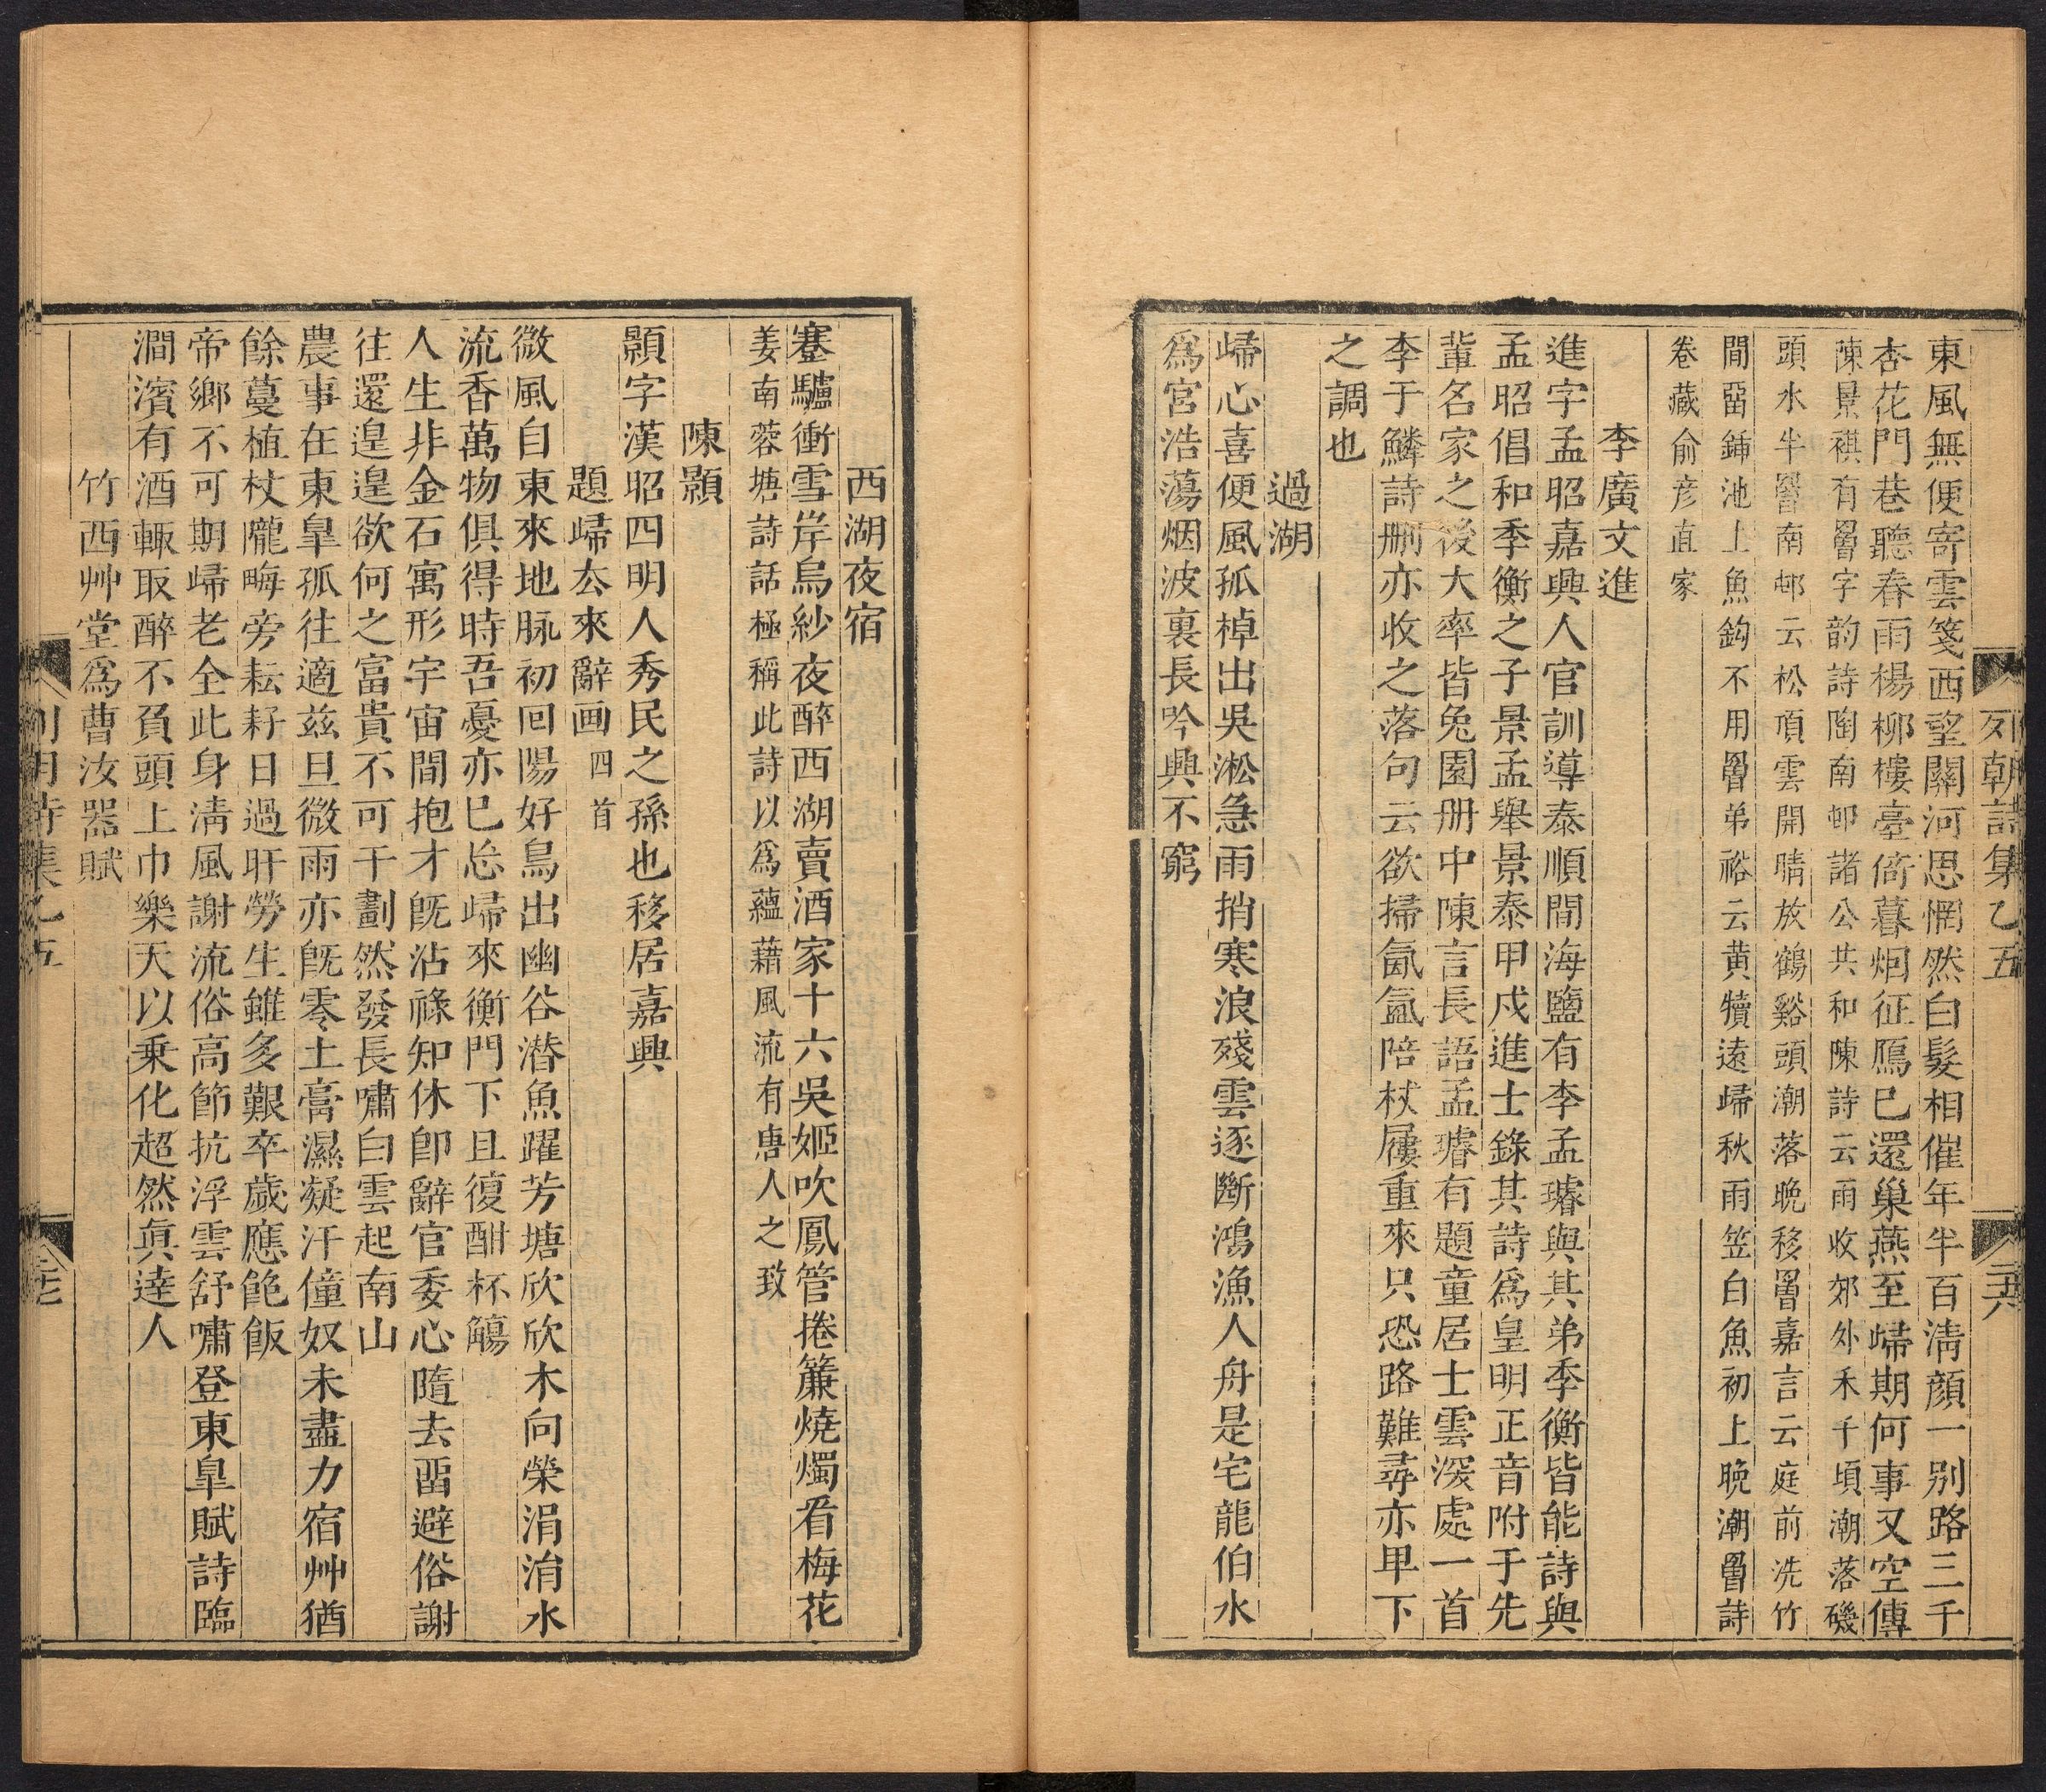 東風無便寄雲箋西望關河思惘然白髮相催年半百淸顔一别路三千
杏花門巷聽春雨楊柳樓臺倚暮烟征鴈已還巢燕至歸期何事又空傳
陳景祺有罾字韵詩陶南邨諸公共和陳詩云雨收郊外禾千頃潮落磯
頭水半罾南邨云松頂雲開晴放鶴谿頭潮落晚移罾嘉言云庭前洗竹
閒畱鍤池上魚鈎不用罾弟裕云黄犢遠歸秋雨笠白魚初上晚潮罾詩
卷藏俞彦直家
李廣文進
進字孟昭嘉興人官訓導泰順間海鹽有李孟璿與其弟季衡皆能詩與
孟昭倡和季衡之子景孟舉景泰甲戍進士錄其詩爲皇明正音附于先
輩名家之後大率皆兔園册中陳言長語孟璿有題童居士雲深處一首
李于鱗詩删亦收之落句云欲掃氤氲陪杖屨重來只恐路難尋亦甲下
之調也
過湖
歸心喜便風孤棹出吳淞急雨捎寒浪殘雲逐斷鴻漁人舟是宅龍伯水
爲宮浩蕩烟波裏長吟興不窮
列朝詩集乙五
西湖夜宿
蹇驢衝雪岸烏紗夜醉西湖賣酒家十六吳姬吹鳳管捲簾燒燭看梅花
姜南蓉塘詩話極稱此詩以爲蘊藉風流有唐人之致
陳顥
顥字漢昭四明人秀民之孫也移居嘉興
題歸去來辭画四首
微風自東來地脉初回陽好鳥出幽谷潜魚躍芳塘欣欣木向榮涓涓水
流香萬物俱得時吾憂亦已忘歸來衡門下且復酣杯觴
人生非金石寓形宇宙間抱才旣沾祿知休卽辭官委心隨去畱避俗謝
往還遑遑欲何之富貴不可干劃然發長嘯白雲起南山
農事在東皐孤往適兹旦微雨亦旣零土膏濕凝汗僮奴未盡力宿艸猶
餘蔓植杖隴畮旁耘耔日過旰勞生雖多艱卒歲應飽飯
帝鄉不可期歸老全此身淸風謝流俗高節抗浮雲舒嘯登東皐賦詩臨
澗濱有酒輙取醉不負頭上巾樂天以乗化超然眞達人
竹西艸堂爲曹汝器賦